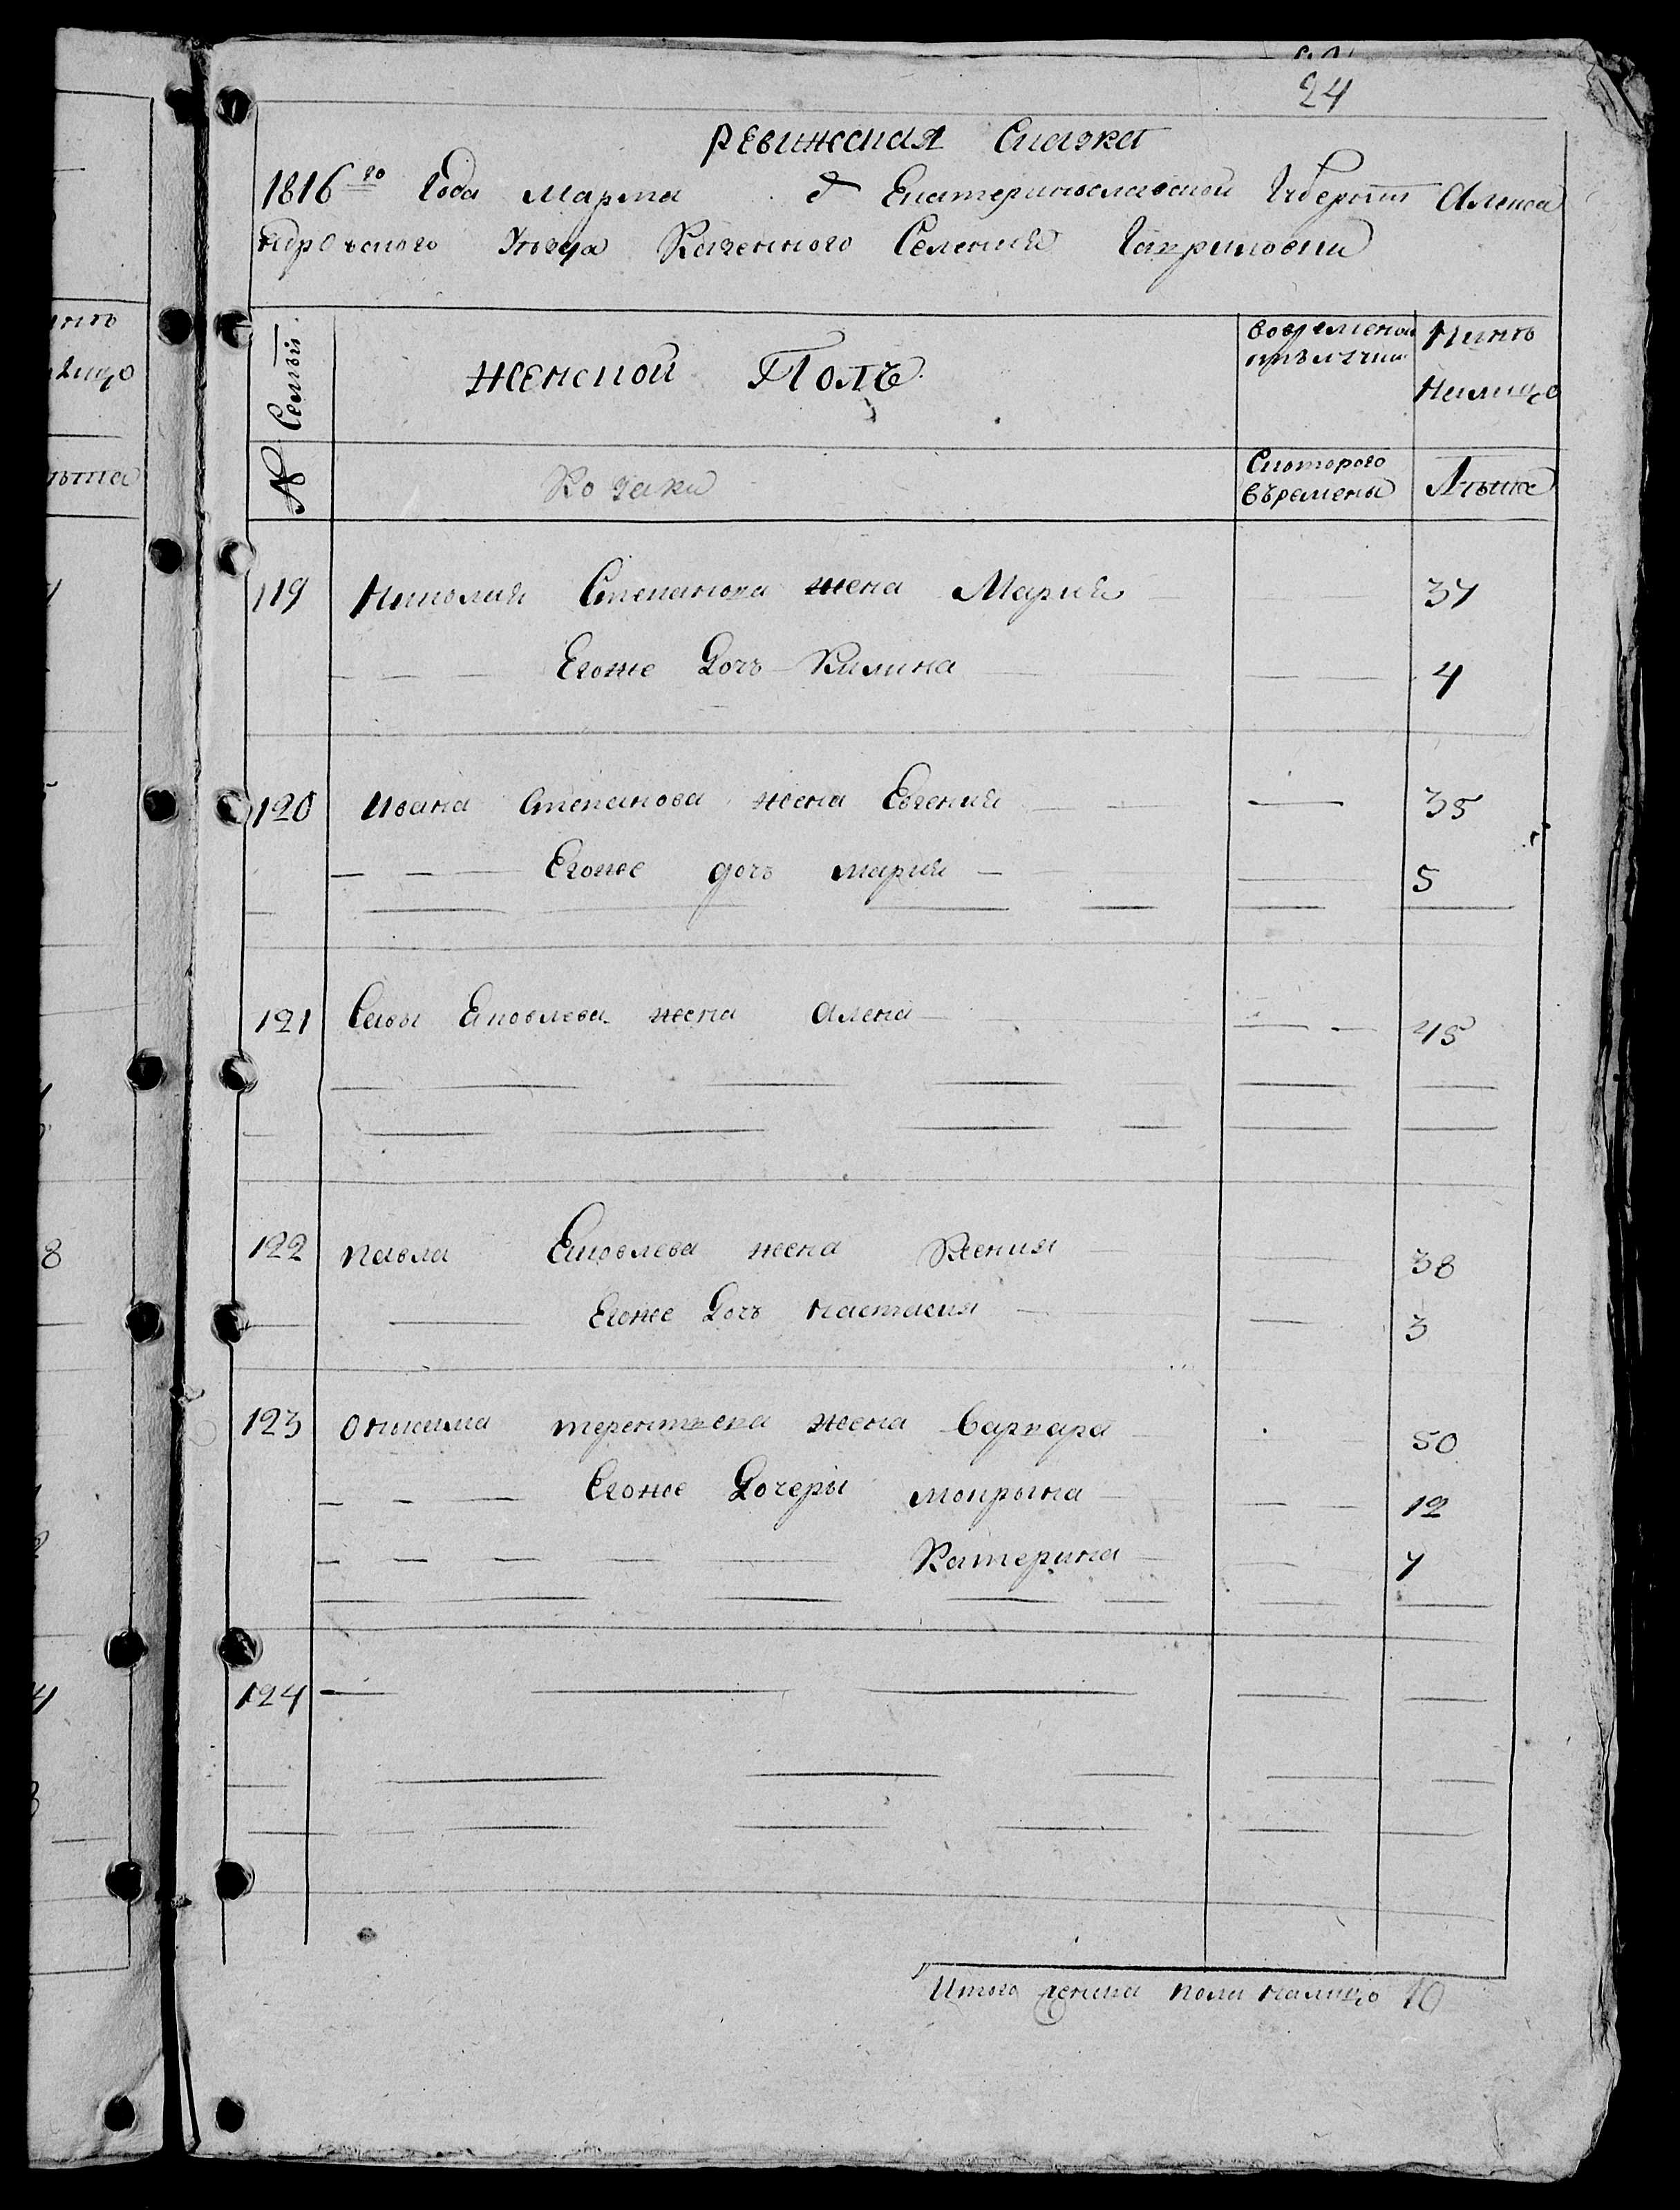 24
Ревижская Сказка
1816го Года Марта д Екатеринославской Губернии Алекса
ндровского Уезда Казенного Селения Гавриловки
№ Семьй
Женской Полъ
вовременной отълучки
Ныне Налицо
Козаки
Скоторого въремены
Лѣта
119 Николая Степанова жена Мария 37
Егоже Дочъ Килина 4
120 Ивана Степанова жена Евгения 35
Егоже дочъ мария 5
121 Савы Ековлева жена Алена 45
122 павла Ековлева жена Ксения 38
Егоже Дочъ настасия 3
123 Онисима терентъева жена варвара 50
Егоже Дочеры мокрына 12
Катерина 7
124
Итого женска пола налицо 10
нъ
лицо
лѣта
8
4